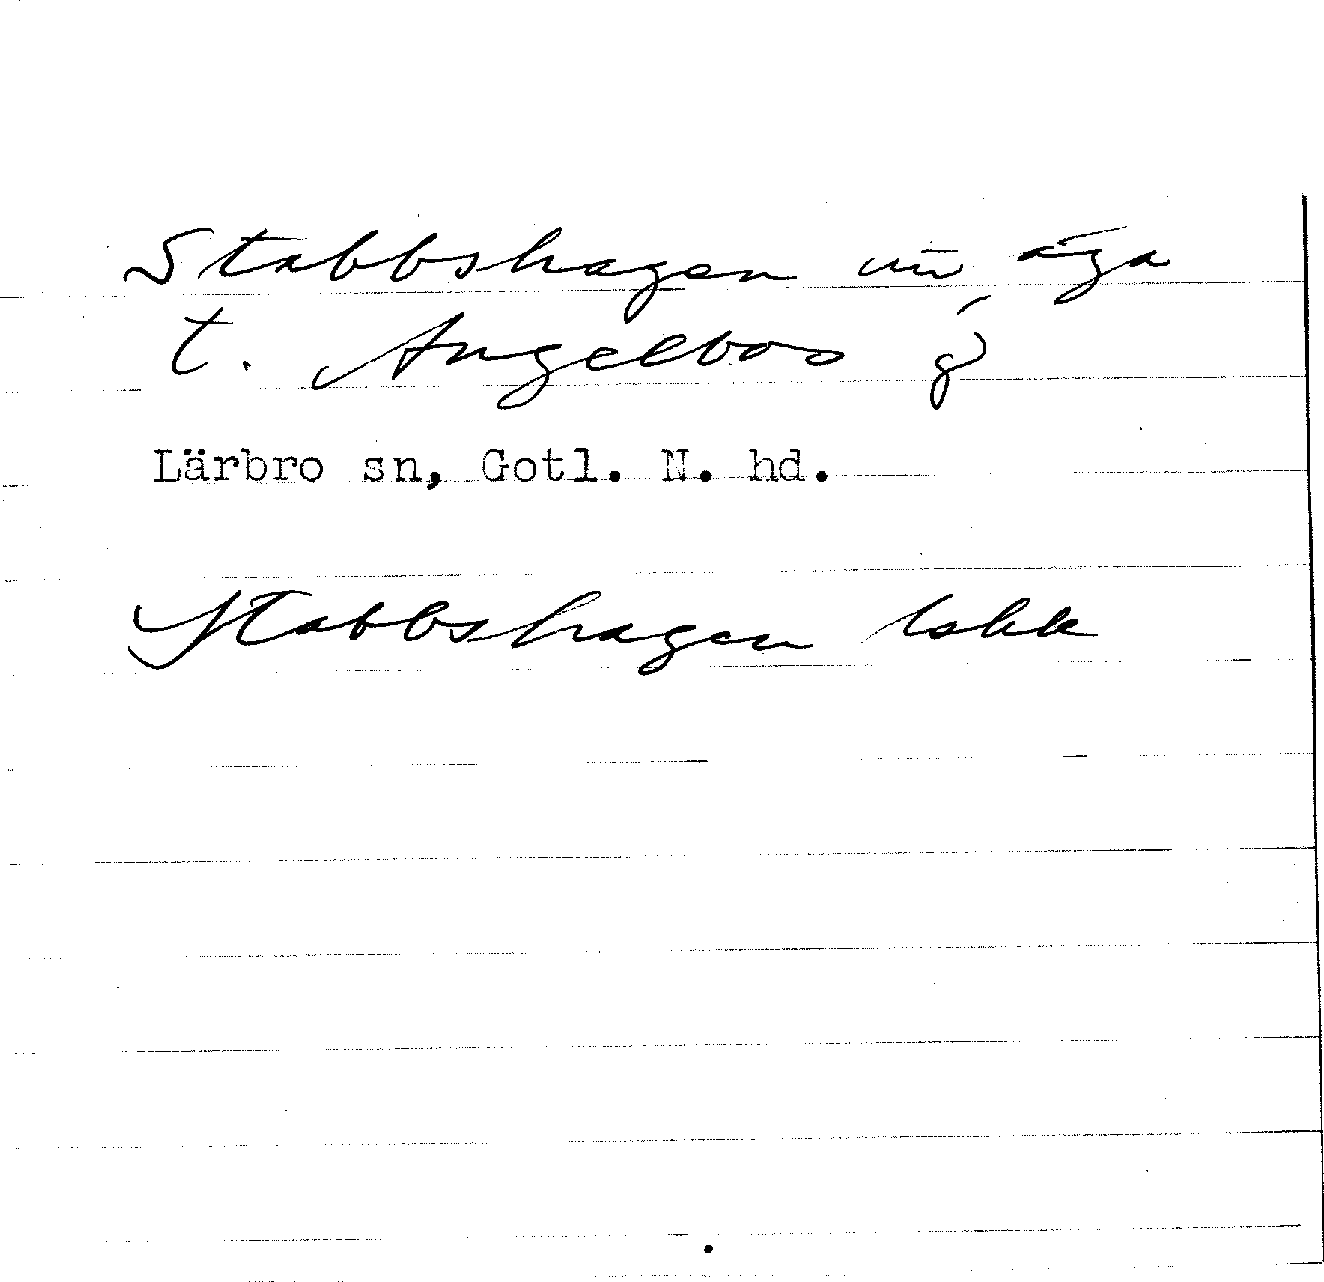 Stabbshagen nu äga
t. Angelbos g
Lärbro sn, Gotl. N. hd.
Stabbshagen